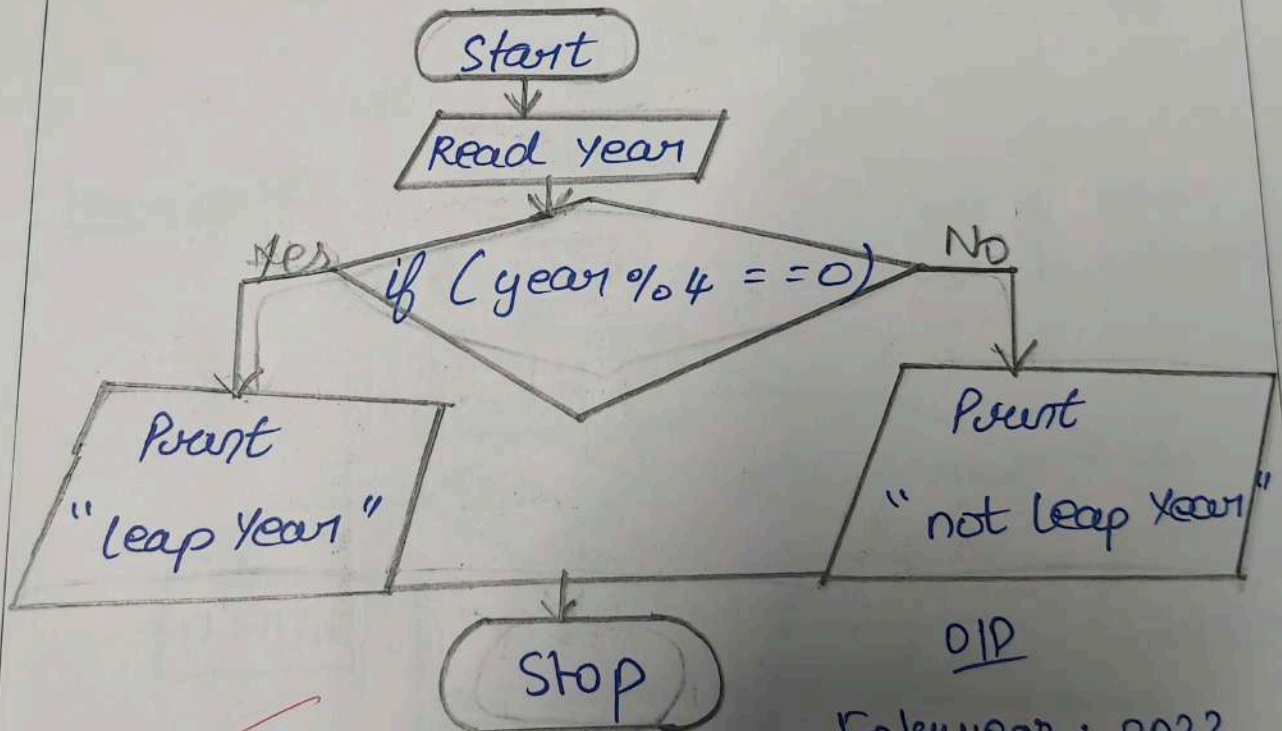 Start
Read year
Yes
No
if (year % 4 = = 0)
Print
"leap Year"
Print
"not leap Year"
Stop
O/P